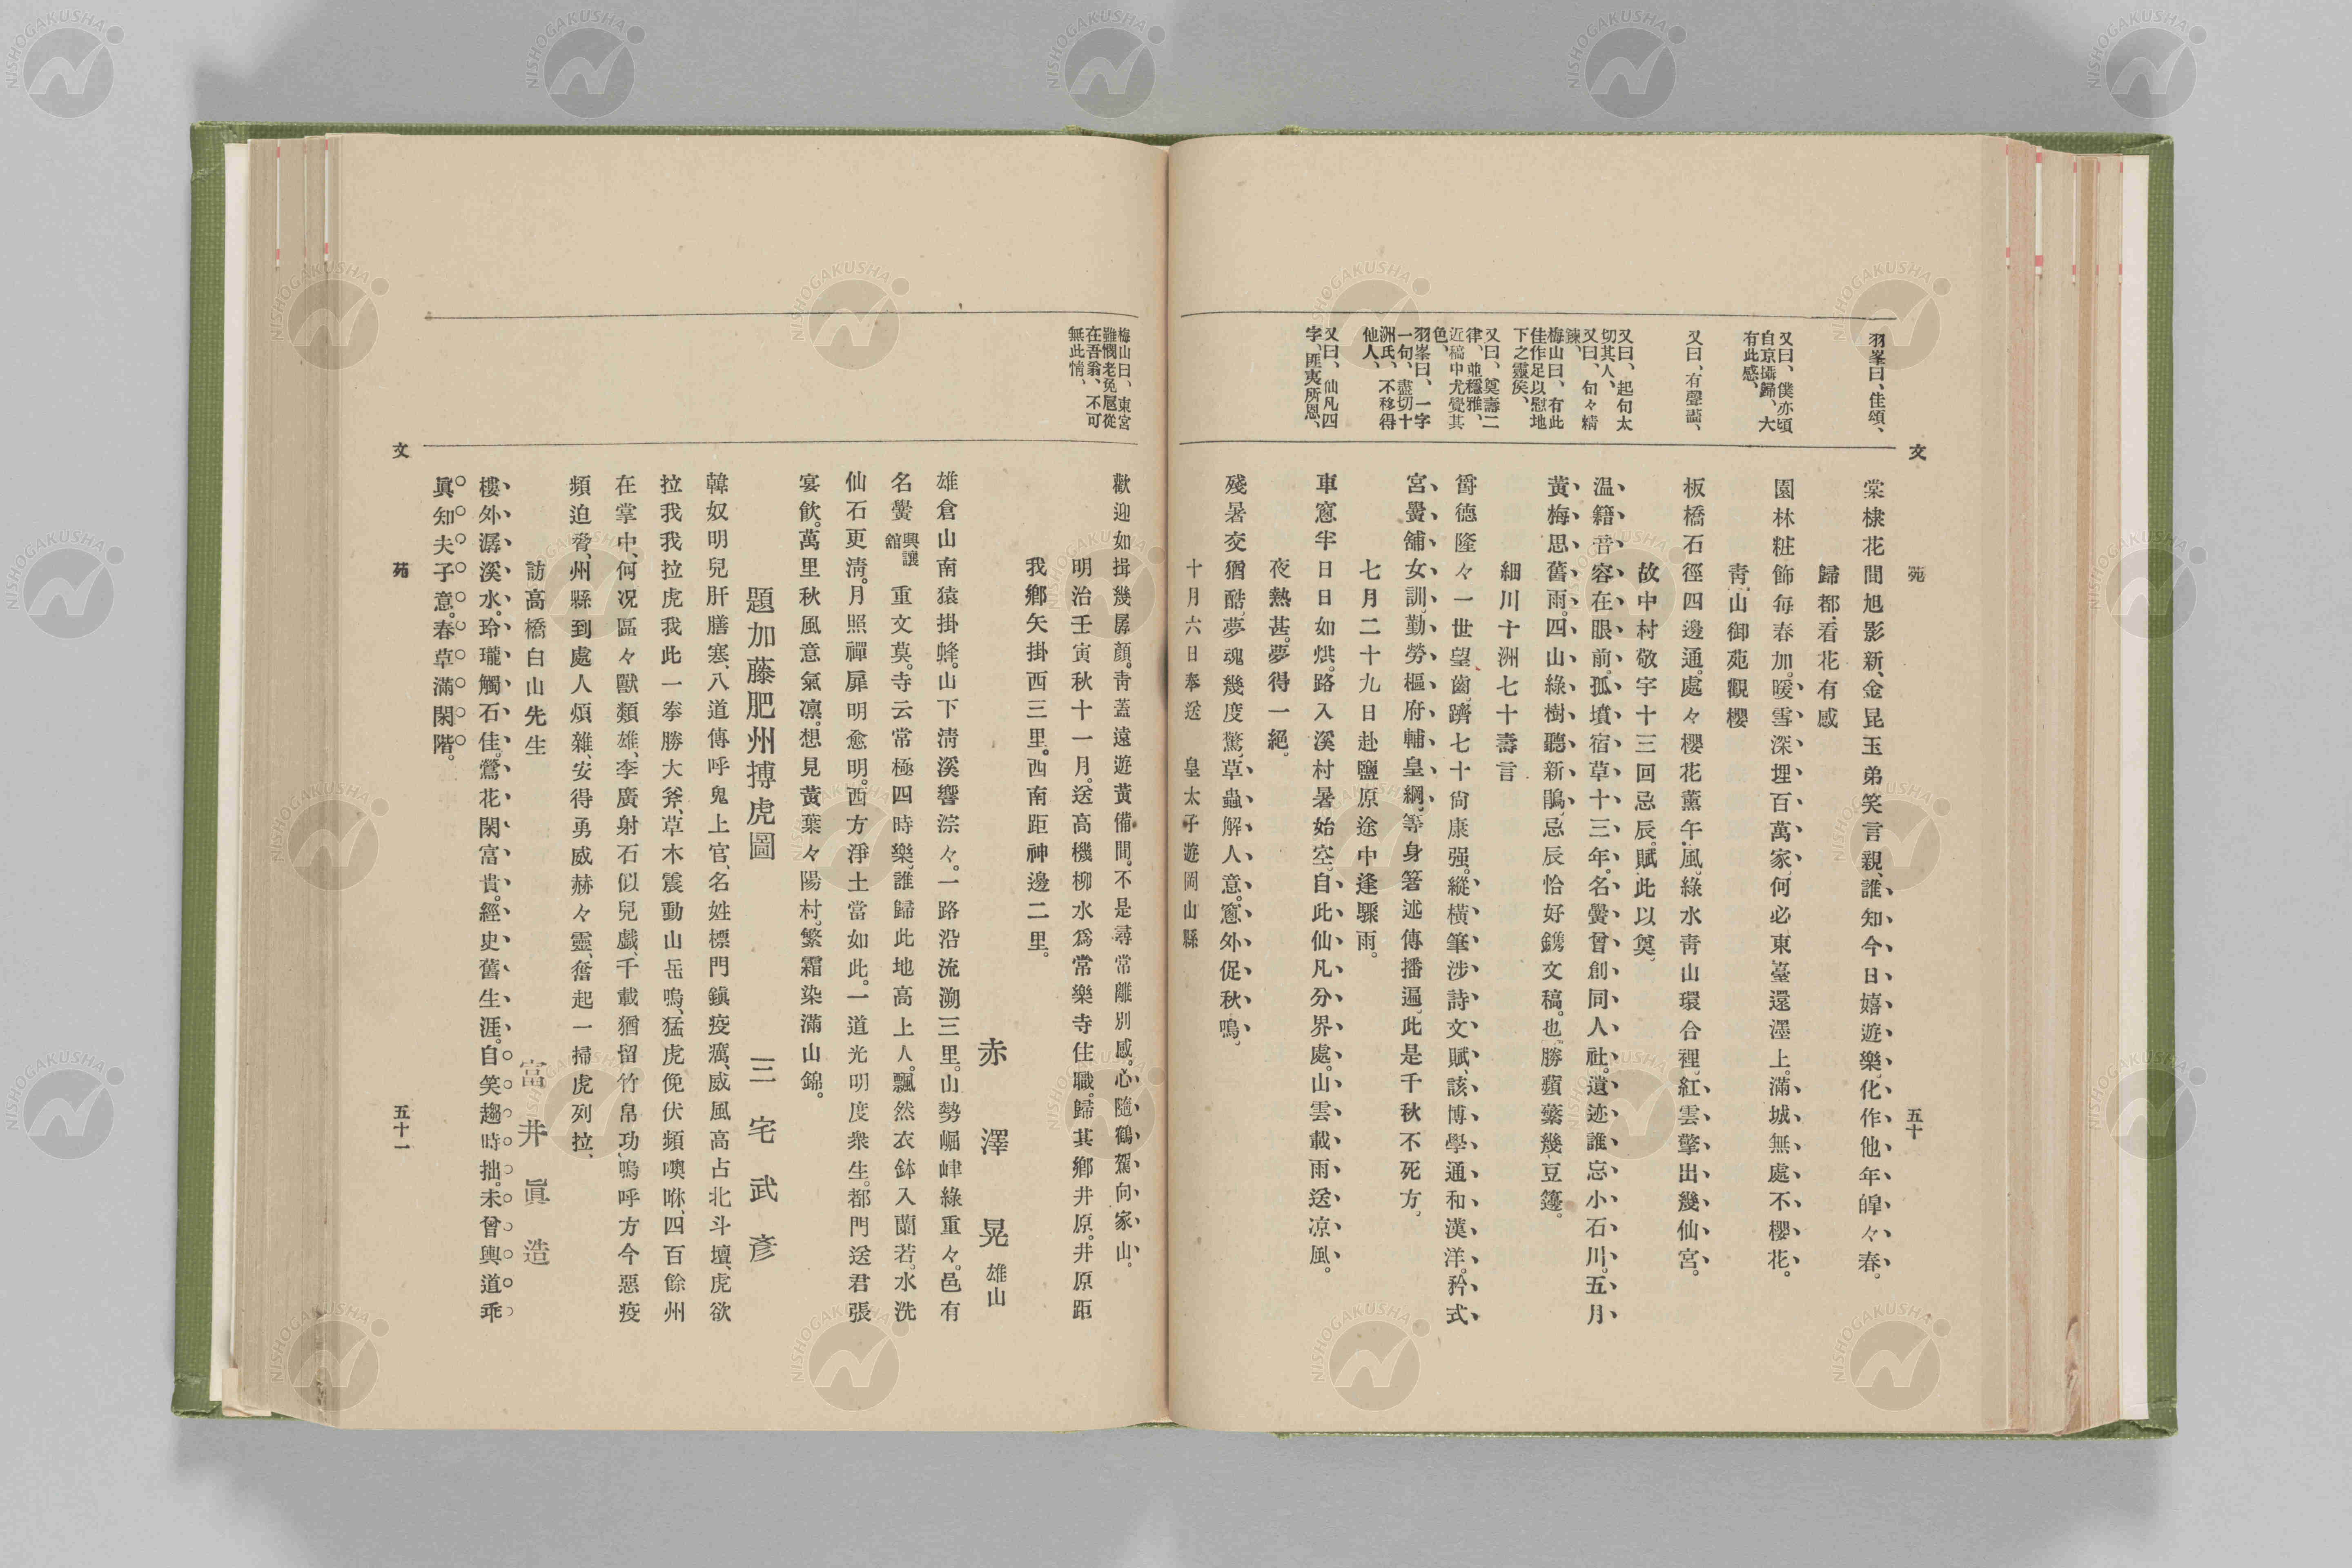 文苑 五十
羽峯曰、佳頌、
又曰、僕亦頃
自京攝歸、大
有此感、
又曰、有聲畫、
又曰、起句太
切其人、
又曰、句々精
鍊、
梅山曰、有此
佳作足以慰地
下之靈矣、
又曰、奠壽二
律、並穩雅、
近稿中尤覺其
色、
羽峯曰、一字
一句、盡切十
洲氏、不移得
他人、
又曰、仙凡四
字、匪夷所思、
棠棣花間旭影新、金昆玉弟笑言親、誰知今日嬉遊樂、化作他年皥々春。
歸都、看花有感
園林粧飾每春加。暖雪深埋百萬家、何必東臺還墨上。滿城無處不櫻花。
靑山御苑觀櫻
板橋石徑四邊通。處々櫻花薰午風。綠水靑山環合裡。紅雲擎出幾仙宮。
故中村敬宇十三回忌辰。賦此以奠、
温籍音容在眼前。孤墳宿草十三年。名黌曾創同人社。遺迹誰忘小石川。五月
黃梅思舊雨。四山綠樹聽新鵑。忌辰恰好鐫文稿。也勝蘋蘩幾豆籩。
細川十洲七十壽言
爵德隆々一世望。齒躋七十尙康强。縱橫筆涉詩文賦、該博學通和漢洋。矜式
宮黌舖女訓、勤勞樞府輔皇綱。等身著述傳播遍。此是千秋不死方。
七月二十九日赴鹽原途中逢驟雨。
車窓半日日如烘。路入溪村暑始空。自此仙凡分界處。山雲載雨送凉風。
夜熱甚。夢得一絕。
殘暑交猶酷、夢魂幾度驚。草蟲解人意。窓外促秋鳴。
十月六日奉送 皇太子遊岡山縣
梅山曰、東宮
雖憫老免扈從
在吾翁、不可
無此情、
歡迎如揖幾孱顏。靑蓋遠遊黃備間。不是尋常離別感。心隨鶴駕向家山。
明治壬寅秋十一月。送高機柳水爲常樂寺住職。歸其鄕井原。井原距
我鄕矢掛西三里。西南距神邊二里。
赤澤晃 雄山
雄倉山南猿掛蜂。山下淸溪響淙々。一路沿流溯三里。山勢崛嵂綠重々。邑有
名黌興讓館重文莫。寺云常極四時樂。誰歸此地高上人。飄然衣鉢入蘭若。水洗
仙石更淸。月照禪扉明愈明。西方淨土當如此。一道光明度衆生。都門送君張
宴飮。萬里秋風意氣凛。想見黃葉々陽村。繁霜染滿山錦。
題加藤肥州搏虎圖 三宅武彥
韓奴明兒肝膳寒、八道傳呼鬼上官、名姓標門鎭疫癘、威風高占北斗壇、虎欲
拉我我拉虎我此一拳勝大斧、草木震動山岳鳴、猛虎俛伏頻噢咻、四百餘州
在掌中、何况區々獸類雄、李廣射石似兒戲、千載猶留竹帛功、嗚呼方今惡疫
頻迫脅、州縣到處人煩雜、安得勇威赫々靈、奮起一掃虎列拉、
訪高橋白山先生 富井眞造
樓外潺溪水。玲瓏觸石佳。鶯花閑富貴。經史舊生涯。自笑趨時拙。未曾與道乖
眞知夫子意。春草滿閑階。
文苑 五十一